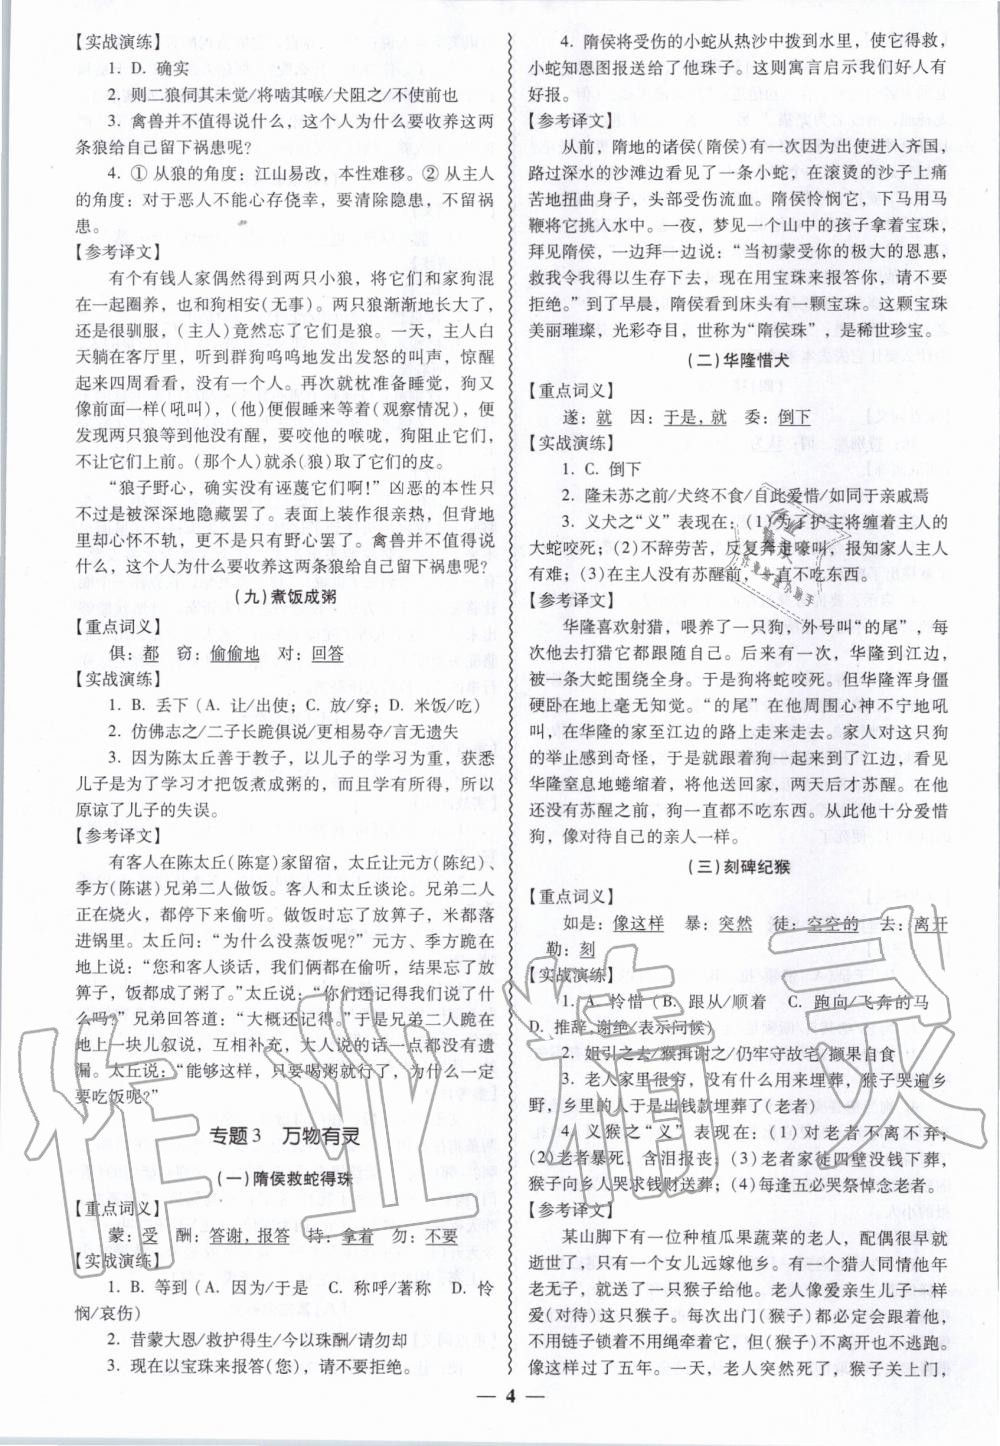 【实战演练】
1. D. 确实
2. 则二狼伺其未觉/将啮其喉/犬阻之/不使前也
3. 禽兽并不值得说什么，这个人为什么要收养这两
条狼给自己留下祸患呢？
4. ① 从狼的角度：江山易改，本性难移。② 从主人
的角度：对于恶人不能心存侥幸，要清除隐患，不留祸
患。
【参考译文】
有个有钱人家偶然得到两只小狼，将它们和家狗混
在一起圈养，也和狗相安(无事)。两只狼渐渐地长大了，
还是很驯服，(主人)竟然忘了它们是狼。一天，主人白
天躺在客厅里，听到群狗呜呜地发出发怒的叫声，惊醒
起来四周看看，没有一个人。再次就枕准备睡觉，狗又
像前面一样(吼叫)，(他)便假睡来等着(观察情况)，便
发现两只狼等到他没有醒，要咬他的喉咙，狗阻止它们，
不让它们上前。(那个人)就杀(狼)取了它们的皮。
“狼子野心，确实没有诬蔑它们啊！”凶恶的本性只
不过是被深深地隐藏罢了。表面上装作很亲热，但背地
里却心怀不轨，更不是只有野心罢了。禽兽并不值得说
什么，这个人为什么要收养这两条狼给自己留下祸患呢？
(九)煮饭成粥
【重点词义】
俱：都 窃：偷偷地 对：回答
【实战演练】
1. B. 丢下(A. 让/出使；C. 放/穿；D. 米饭/吃)
2. 仿佛志之/二子长跪俱说/更相易夺/言无遗失
3. 因为陈太丘善于教子，以儿子的学习为重，获悉
儿子是为了学习才把饭煮成粥的而且学有所得，所以
原谅了儿子的失误。
【参考译文】
有客人在陈太丘(陈寔)家留宿，太丘让元方(陈纪)、
季方(陈谌)兄弟二人做饭。客人和太丘谈论。兄弟二人
正在烧火，都停下来偷听。做饭时忘了放箅子，米都落
进锅里。太丘问：“为什么没蒸饭呢？”元方、季方跪在
地上说：“您和客人谈话，我们俩都在偷听，结果忘了放
箅子，饭都成了粥了。”太丘说：“你们还记得我们说了什
么吗？”兄弟回答道：“大概还记得。”于是兄弟二人跪在
地上一块儿叙说，互相补充，大人说的话一点都没有遗
漏。太丘说：“能够这样，只要喝粥就行了，为什么一定
要吃饭呢？”
专题3 万物有灵
(一)隋侯救蛇得珠
【重点词义】
蒙：受 酬：答谢，报答 持：拿着 勿：不要
【实战演练】
1. B. 等到(A. 因为/于是 C. 称呼/著称 D. 怜
悯/哀伤)
2. 昔蒙大恩/救护得生/今以珠酬/请勿却
3. 现在以宝珠来报答(您)，请不要拒绝。
4. 隋侯将受伤的小蛇从热沙中拨到水里，使它得救，
小蛇知恩图报送给了他珠子。这则寓言启示我们好人有
好报。
【参考译文】
从前，隋地的诸侯(隋侯)有一次因为出使进入齐国，
路过深水的沙滩边看见了一条小蛇，在滚烫的沙子上痛
苦地扭曲身子，头部受伤流血。隋侯怜悯它，下马用马
鞭将它挑入水中。一夜，梦见一个山中的孩子拿着宝珠，
拜见隋侯，一边拜一边说：“当初蒙受你的极大的恩惠，
救我令我得以生存下去，现在用宝珠来报答你，请不要
拒绝。”到了早晨，隋侯看到床头有一颗宝珠。这颗宝珠
美丽璀璨，光彩夺目，世称为“隋侯珠”，是稀世珍宝。
(二)华隆惜犬
【重点词义】
遂：就 因：于是，就 委：倒下
【实战演练】
1. C. 倒下
2. 隆未苏之前/犬终不食/自此爱惜/如同于亲戚焉
3. 义犬之“义”表现在：(1)为了护主将缠着主人的
大蛇咬死；(2)不辞劳苦，反复奔走嚎叫，报知家人主人
有难；(3)在主人没有苏醒前，一直不吃东西。
【参考译文】
华隆喜欢射猎，喂养了一只狗，外号叫“的尾”，每
次他去打猎它都跟随自己。后来有一次，华隆到江边，
被一条大蛇围绕全身。于是狗将蛇咬死。但华隆浑身僵
硬卧在地上毫无知觉。“的尾”在他周围心神不宁地吼
叫，在华隆的家至江边的路上走来走去。家人对这只狗
的举止感到奇怪，于是就跟着狗一起来到了江边，看见
华隆窒息地蜷缩着，将他送回家，两天后才苏醒。在他
还没有苏醒之前，狗一直都不吃东西。从此他十分爱惜
狗，像对待自己的亲人一样。
(三)刻碑纪猴
【重点词义】
如是：像这样 暴：突然 徒：空空的 去：离开
勒：刻
【实战演练】
1. A. 怜惜(B. 跟从/顺着 C. 跑向/飞奔的马
D. 推辞，谢绝/表示问候)
2. 妲引之去/猴揖谢之/仍牢守故宅/撷果自食
3. 老人家里很穷，没有什么用来埋葬，猴子哭遍乡
野，乡里的人于是出钱款埋葬了(老者)
4. 义猴之“义”表现在：(1)对老者不离不弃；
(2)老者暴死，含泪报丧；(3)老者家徒四壁没钱下葬，
猴子向乡人哭求钱财送葬；(4)每逢五必哭祭悼念老者。
【参考译文】
某山脚下有一位种植瓜果蔬菜的老人，配偶很早就
逝世了，只有一个女儿远嫁他乡。有一个猎人同情他年
老无子，就送了一只猴子给他。老人像爱亲生儿子一样
爱(对待)这只猴子。每次出门(猴子)都必定会跟着他，
不用链子锁着不用绳牵着它，但(猴子)不离开也不逃跑。
像这样过了五年。一天，老人突然死了，猴子关上门，
4
作业精灵